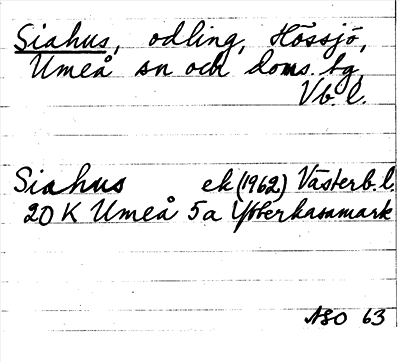 Siahus, odling, Hössjö,
Umeå sn och doms. bg,
Vb. l.
Siahus ek (1962) Västerb. l.
20 K Umeå 5a Ytterkasamark
ASO 63